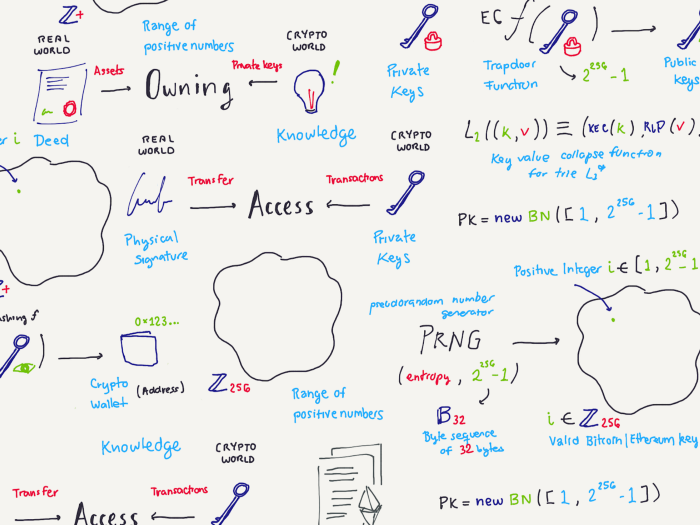 ℤ+
Range of
positive numbers
REAL
WORLD
Assets
Owning
Private keys
CRYPTO
WORLD
!
Knowledge
Deed
Private
Keys
EC f(
)
Trapdoor
Function
2^256-1
Public
keys
er i
REAL
WORLD
CRYPTO
WORLD
Transfer
Access
Transactions
Physical
Signature
Private
Keys
L2((k,v)) ≡ (KEC(k), RLP(v)
Key value collapse function
for trie L3*
PK = new BN([1, 2^256-1])
Positive Integer i ∈ [1, 2^256-1
+
ashing f
)
0x123...
Crypto
Wallet
(Address)
ℤ256
Range of
positive numbers
pseudorandom number
generator
PRNG
(entropy, 2^256-1)
B32
Byte sequence
of 32 bytes
i ∈ ℤ256
Valid Bitcoin | Ethereum key
Knowledge
CRYPTO
WORLD
Transfer
Access
Transactions
PK = new BN([1, 2^256-1])